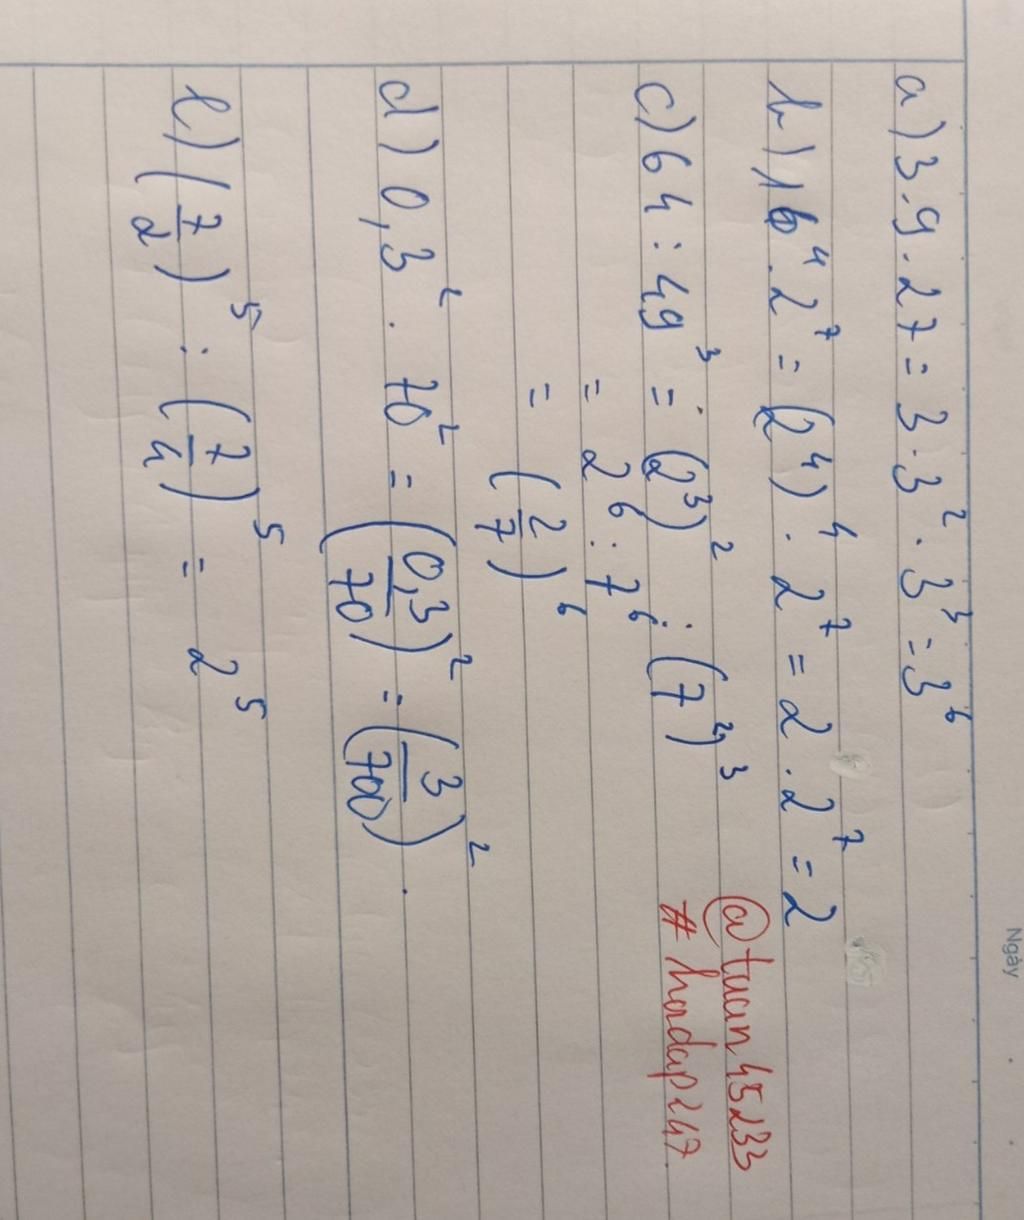 Ngày
a) 3.9.27 = 3.3².3³ = 3⁶
b) 16⁴.2⁷ = (2⁴)⁴.2⁷ = 2.2⁷ = 2
c) 64 : 49³ = (2³)² : (7²)³
= 2⁶ : 7⁶
= (2/7)⁶
d) 0,3² . 70² = (0,3/70)² = (3/700)².
e) (7/2)⁵ : (7/4)⁵ = 2⁵
@tuan45233
#hoidap247